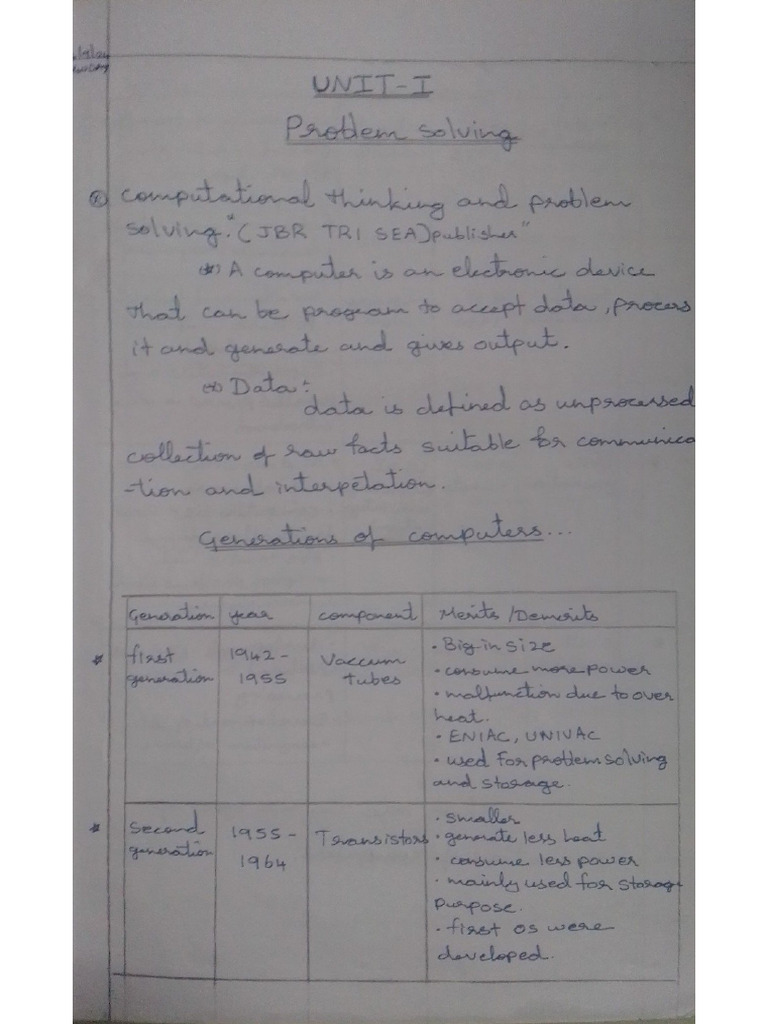 UNIT-I
Problem solving
computational thinking and problem
solving. "(JBR TRI SEA) publisher"
A computer is an electronic device
that can be program to accept data, process
it and generate and gives output.
Data:
data is defined as unprocessed
collection of raw facts suitable for communica
-tion and interpetation.
Generations of computers...
Generation year component Merits/Demerits
* first generation 1942-1955 Vaccum tubes
• Big in size
• consume more power
• malfunction due to over
heat.
• ENIAC, UNIVAC
• used for problem solving
and storage.
* Second generation 1955-1964 Transistors
• smaller
• generate less heat
• consume less power
• mainly used for storage
purpose.
• first os were
developed.